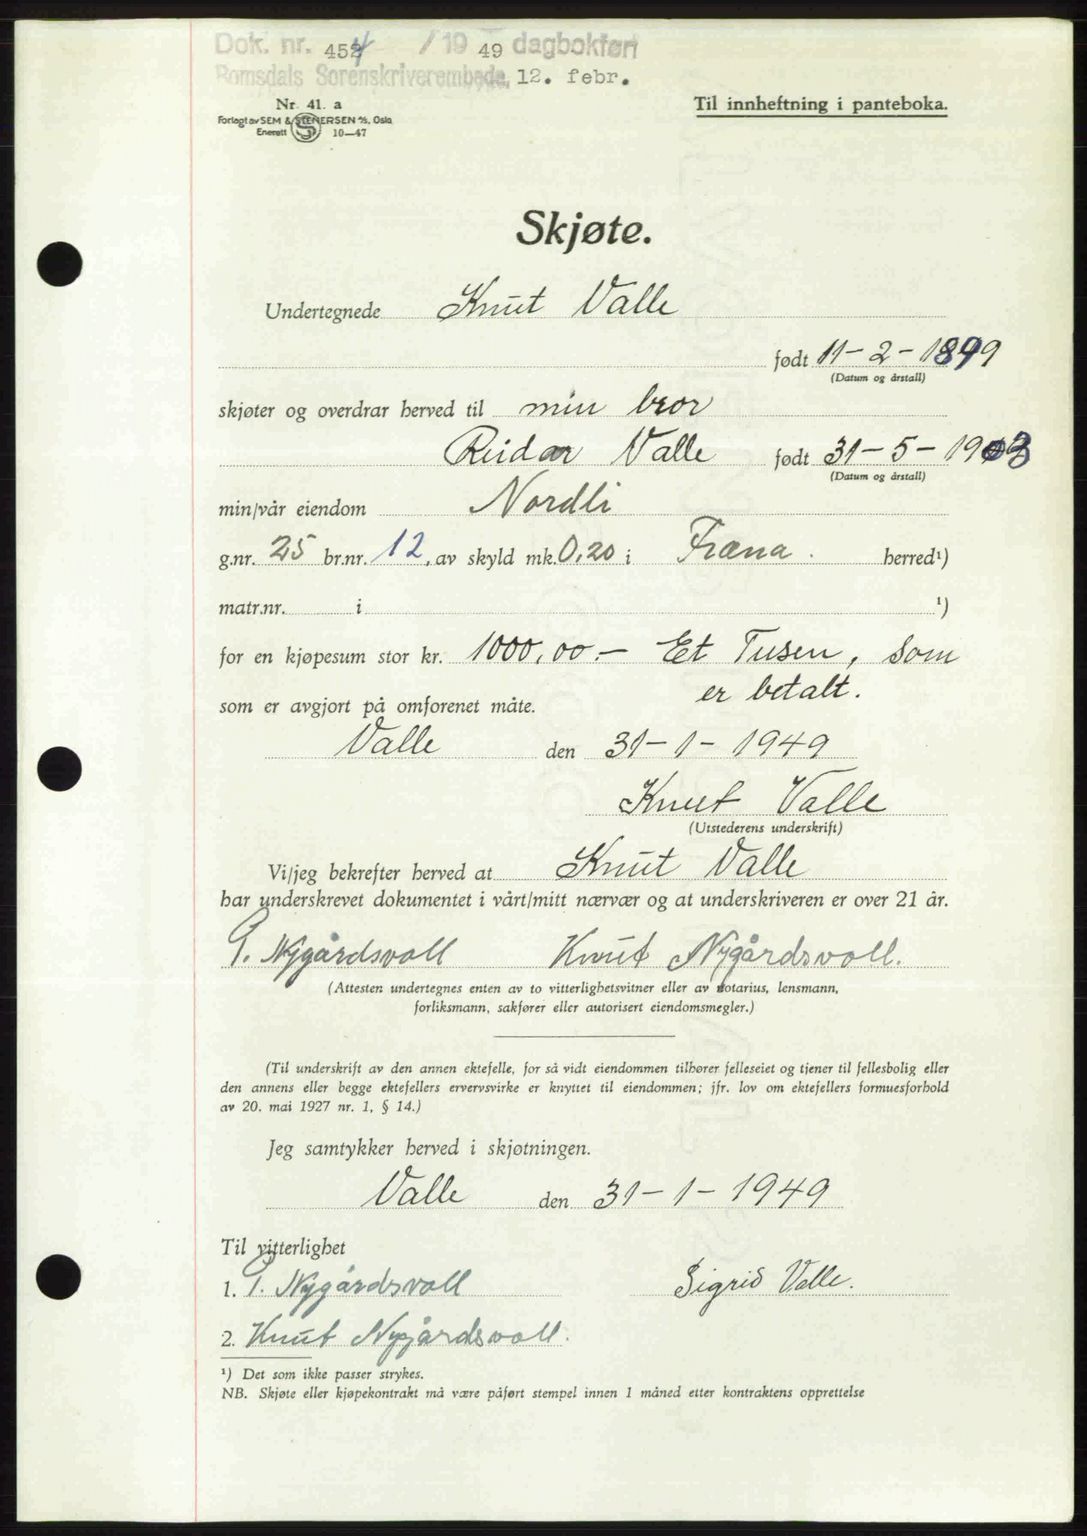 Dok. nr. 454 / 19 49 dagbokført
Romsdals Sorenskriverembede, 12. febr.
Nr. 41. a
Forlagt av SEM & STENERSEN A/S, Oslo
Enerett S 10—47
Til innheftning i panteboka.
Skjøte.
Undertegnede Knut Valle
født 11-2-1899
(Datum og årstall)
skjøter og overdrar herved til min bror
Reidar Valle født 31-5-1903
(Datum og årstall)
min/vår eiendom Nordli
g.nr. 25 br.nr. 12, av skyld mk. 0,20 i Fræna. herred¹)
matr.nr. i ¹)
for en kjøpesum stor kr. 1000,00.- Et Tusen, som
er betalt.
som er avgjort på omforenet måte.
Valle den 31-1-1949
Knut Valle
(Utstederens underskrift)
Vi/jeg bekrefter herved at Knut Valle
har underskrevet dokumentet i vårt/mitt nærvær og at underskriveren er over 21 år.
P. Nygårdsvoll Knut Nygårdsvoll.
(Attesten undertegnes enten av to vitterlighetsvitner eller av notarius, lensmann,
forliksmann, sakfører eller autorisert eiendomsmegler.)
(Til underskrift av den annen ektefelle, for så vidt eiendommen tilhører felleseiet og tjener til fellesbolig eller
den annens eller begge ektefellers ervervsvirke er knyttet til eiendommen; jfr. lov om ektefellers formuesforhold
av 20. mai 1927 nr. 1, § 14.)
Jeg samtykker herved i skjøtningen.
Valle den 31-1-1949
Til vitterlighet
1. P. Nygårdsvoll Sigrid Valle.
2. Knut Nygårdsvoll.
¹) Det som ikke passer strykes.
NB. Skjøte eller kjøpekontrakt må være påført stempel innen 1 måned etter kontraktens opprettelse